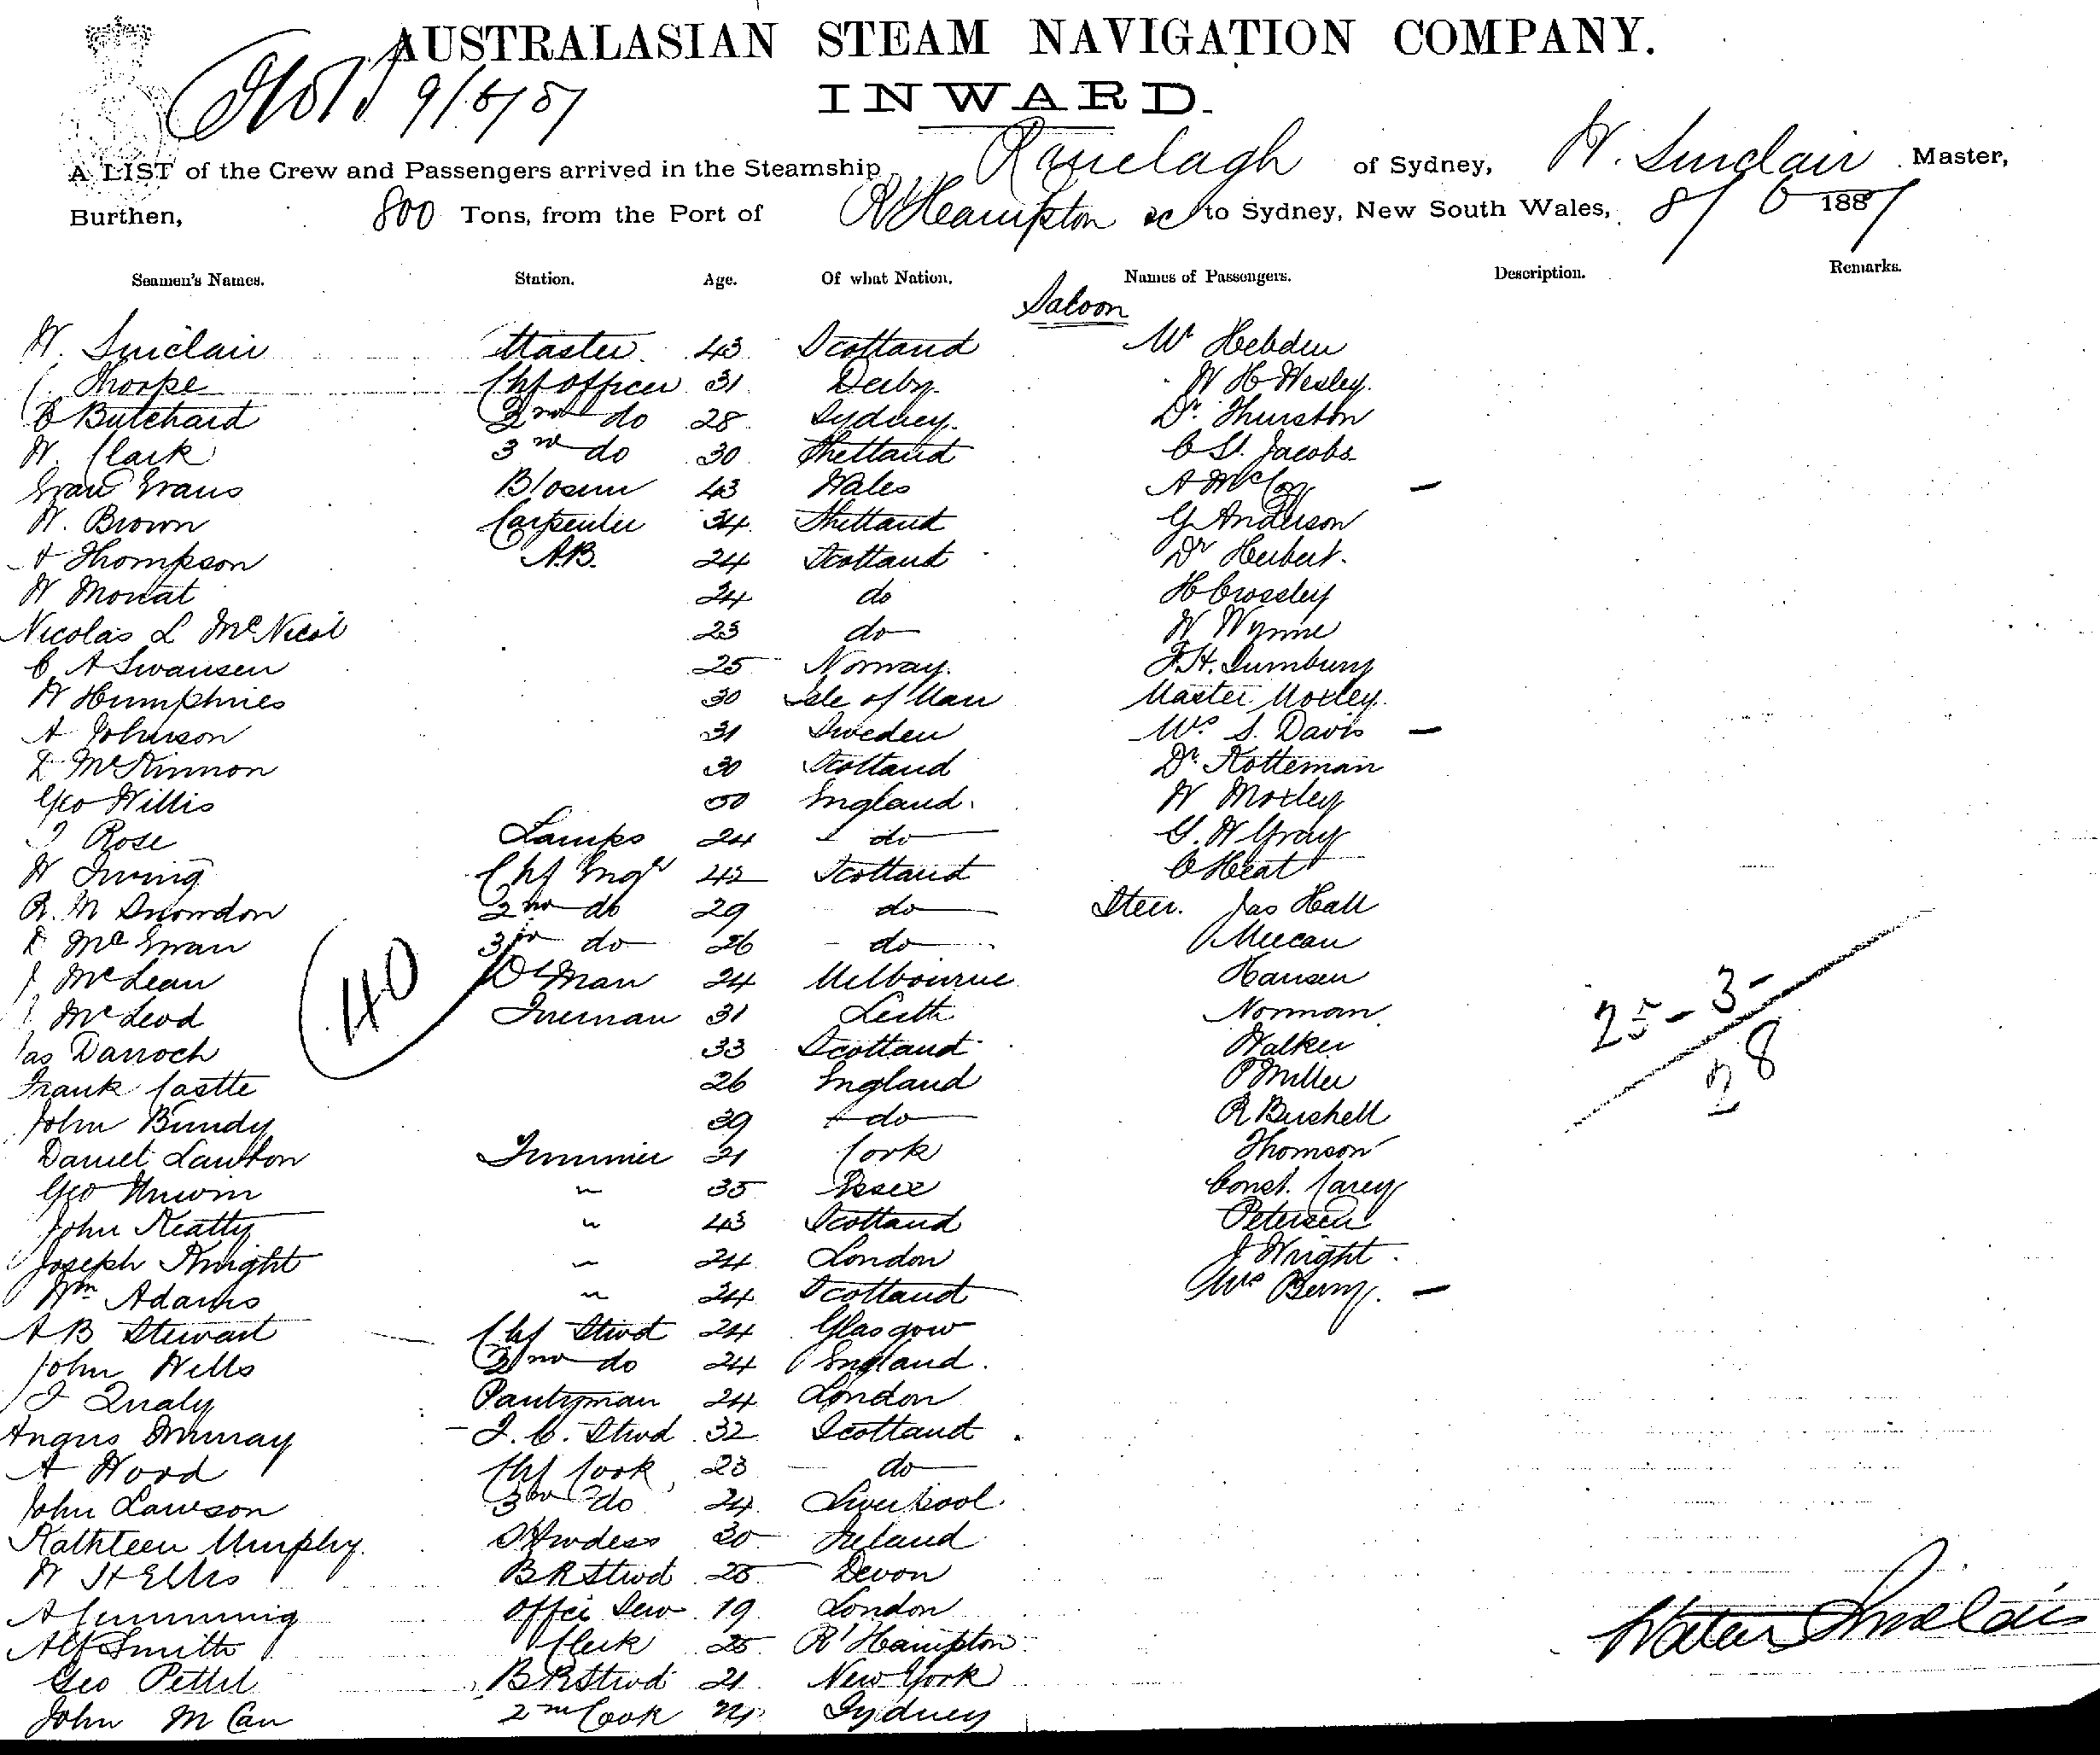 AUSTRALASIAN STEAM NAVIGATION COMPANY.
9/6/87
INWARD.
A LIST of the Crew and Passengers arrived in the Steamship Ranelagh of Sydney, W. Sinclair Master,
Burthen, 800 Tons, from the Port of R'Hampton &c to Sydney, New South Wales, 8/6 1887
Seamen's Names. Station. Age. Of what Nation. Names of Passengers. Description. Remarks.
Saloon
W. Sinclair Master 43 Scotland Mr Hebden
C. Thorpe Chf Officer 31 Derby W H Wesley.
B Butchard 2nd do 28 Sydney. Dr. Thurston
W. Clark 3rd do 30 Shetland C St. Jacobs
Evan Evans Bosun 43 Wales A McCoy —
W. Brown Carpenter 34 Shetland G Anderson
A Thompson A.B. 24 Scotland Dr Herbert.
W Mouat 24 do H Crossley
Nicolas L McNicol 23 do W Wynne
C A Swansen 25 Norway. F. H.
W Humphries 30 Isle of Man Master Moxley.
A Johnson 31 Sweden Mrs. S. Davis —
D McKinnon 30 Scotland Dr. Kotteman
Geo Willis 50 England. W Moxley
T Rose Lamps 24 do G. W Gray
W Irving Chf Engr 42 Scotland C Heat
R. M Snowdon 2nd do 29 do Steer. Jas Hall
D McEwan 3rd do 26 do Meecan
J. McLean Dkman 24 Melbourne Hansen
J. McLeod Fireman 31 Leith Norman
Jas Darroch 33 Scotland Walker
Frank Castle 26 England P Miller
John Bundy 39 do R Bushell
Daniel Lawton Trimmer 31 Cork Thomson
Geo Unwin " 35 Essex Const. Carey
John Keatty " 43 Scotland Petersen
Joseph Knight " 24 London J Wright
Wm Adams " 24 Scotland Mrs Berry. —
A B Stewart Chf Stwd 24 Glasgow
John Wells 2nd do 24 England.
J Qualy Pantryman 24 London
Angus Murray F. C. Stwd 32 Scotland
A Wood Chf Cook 23 do
John Lawson 3rd do 24 Liverpool
Kathleen Murphy. Stwdess 30 Ireland
W H Ellis B R Stwd 25 Devon
A Cumming Offcr Serv 19 London
Alf Smith Clerk 25 R'Hampton
Geo Pettel B R Stwd 21 New York
John McCan 2nd Cook 24 Sydney
40
25 - 3 -
28
Walter Sinclair